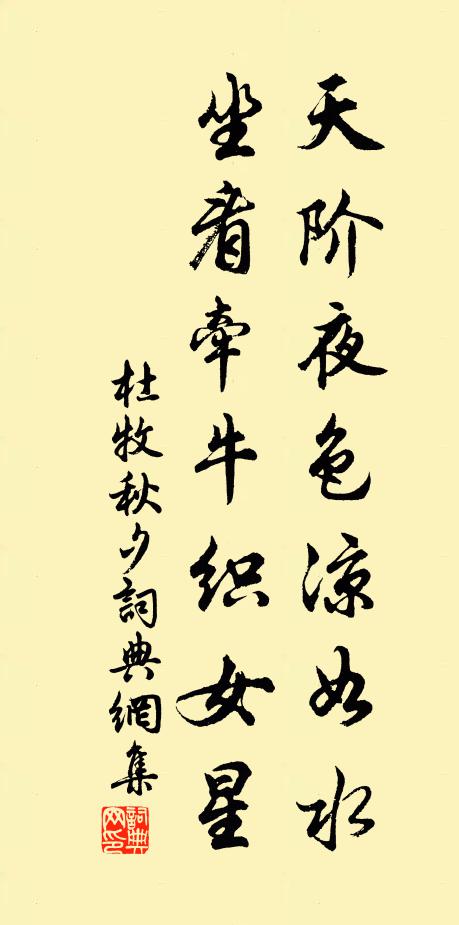 天阶夜色凉如水
坐看牵牛织女星
杜牧秋夕詞典網集
詞典网印